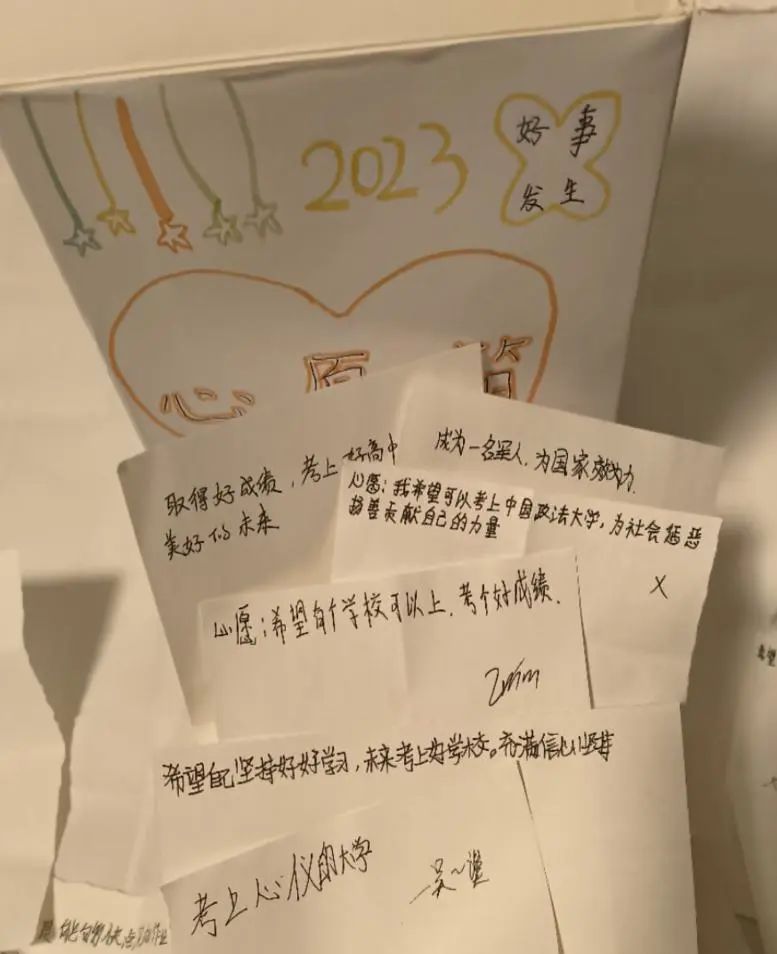 2023
好事
发生
心愿
取得好成绩，考上好高中
美好的未来
成为一名军人，为国家效力
心愿：我希望可以考上中国政法大学，为社会惩恶
扬善贡献自己的力量
X
心愿：希望有个学校可以上，考个好成绩．
希望自己坚持好好学习，未来考上好学校。充满信心坚持
考上心仪的大学